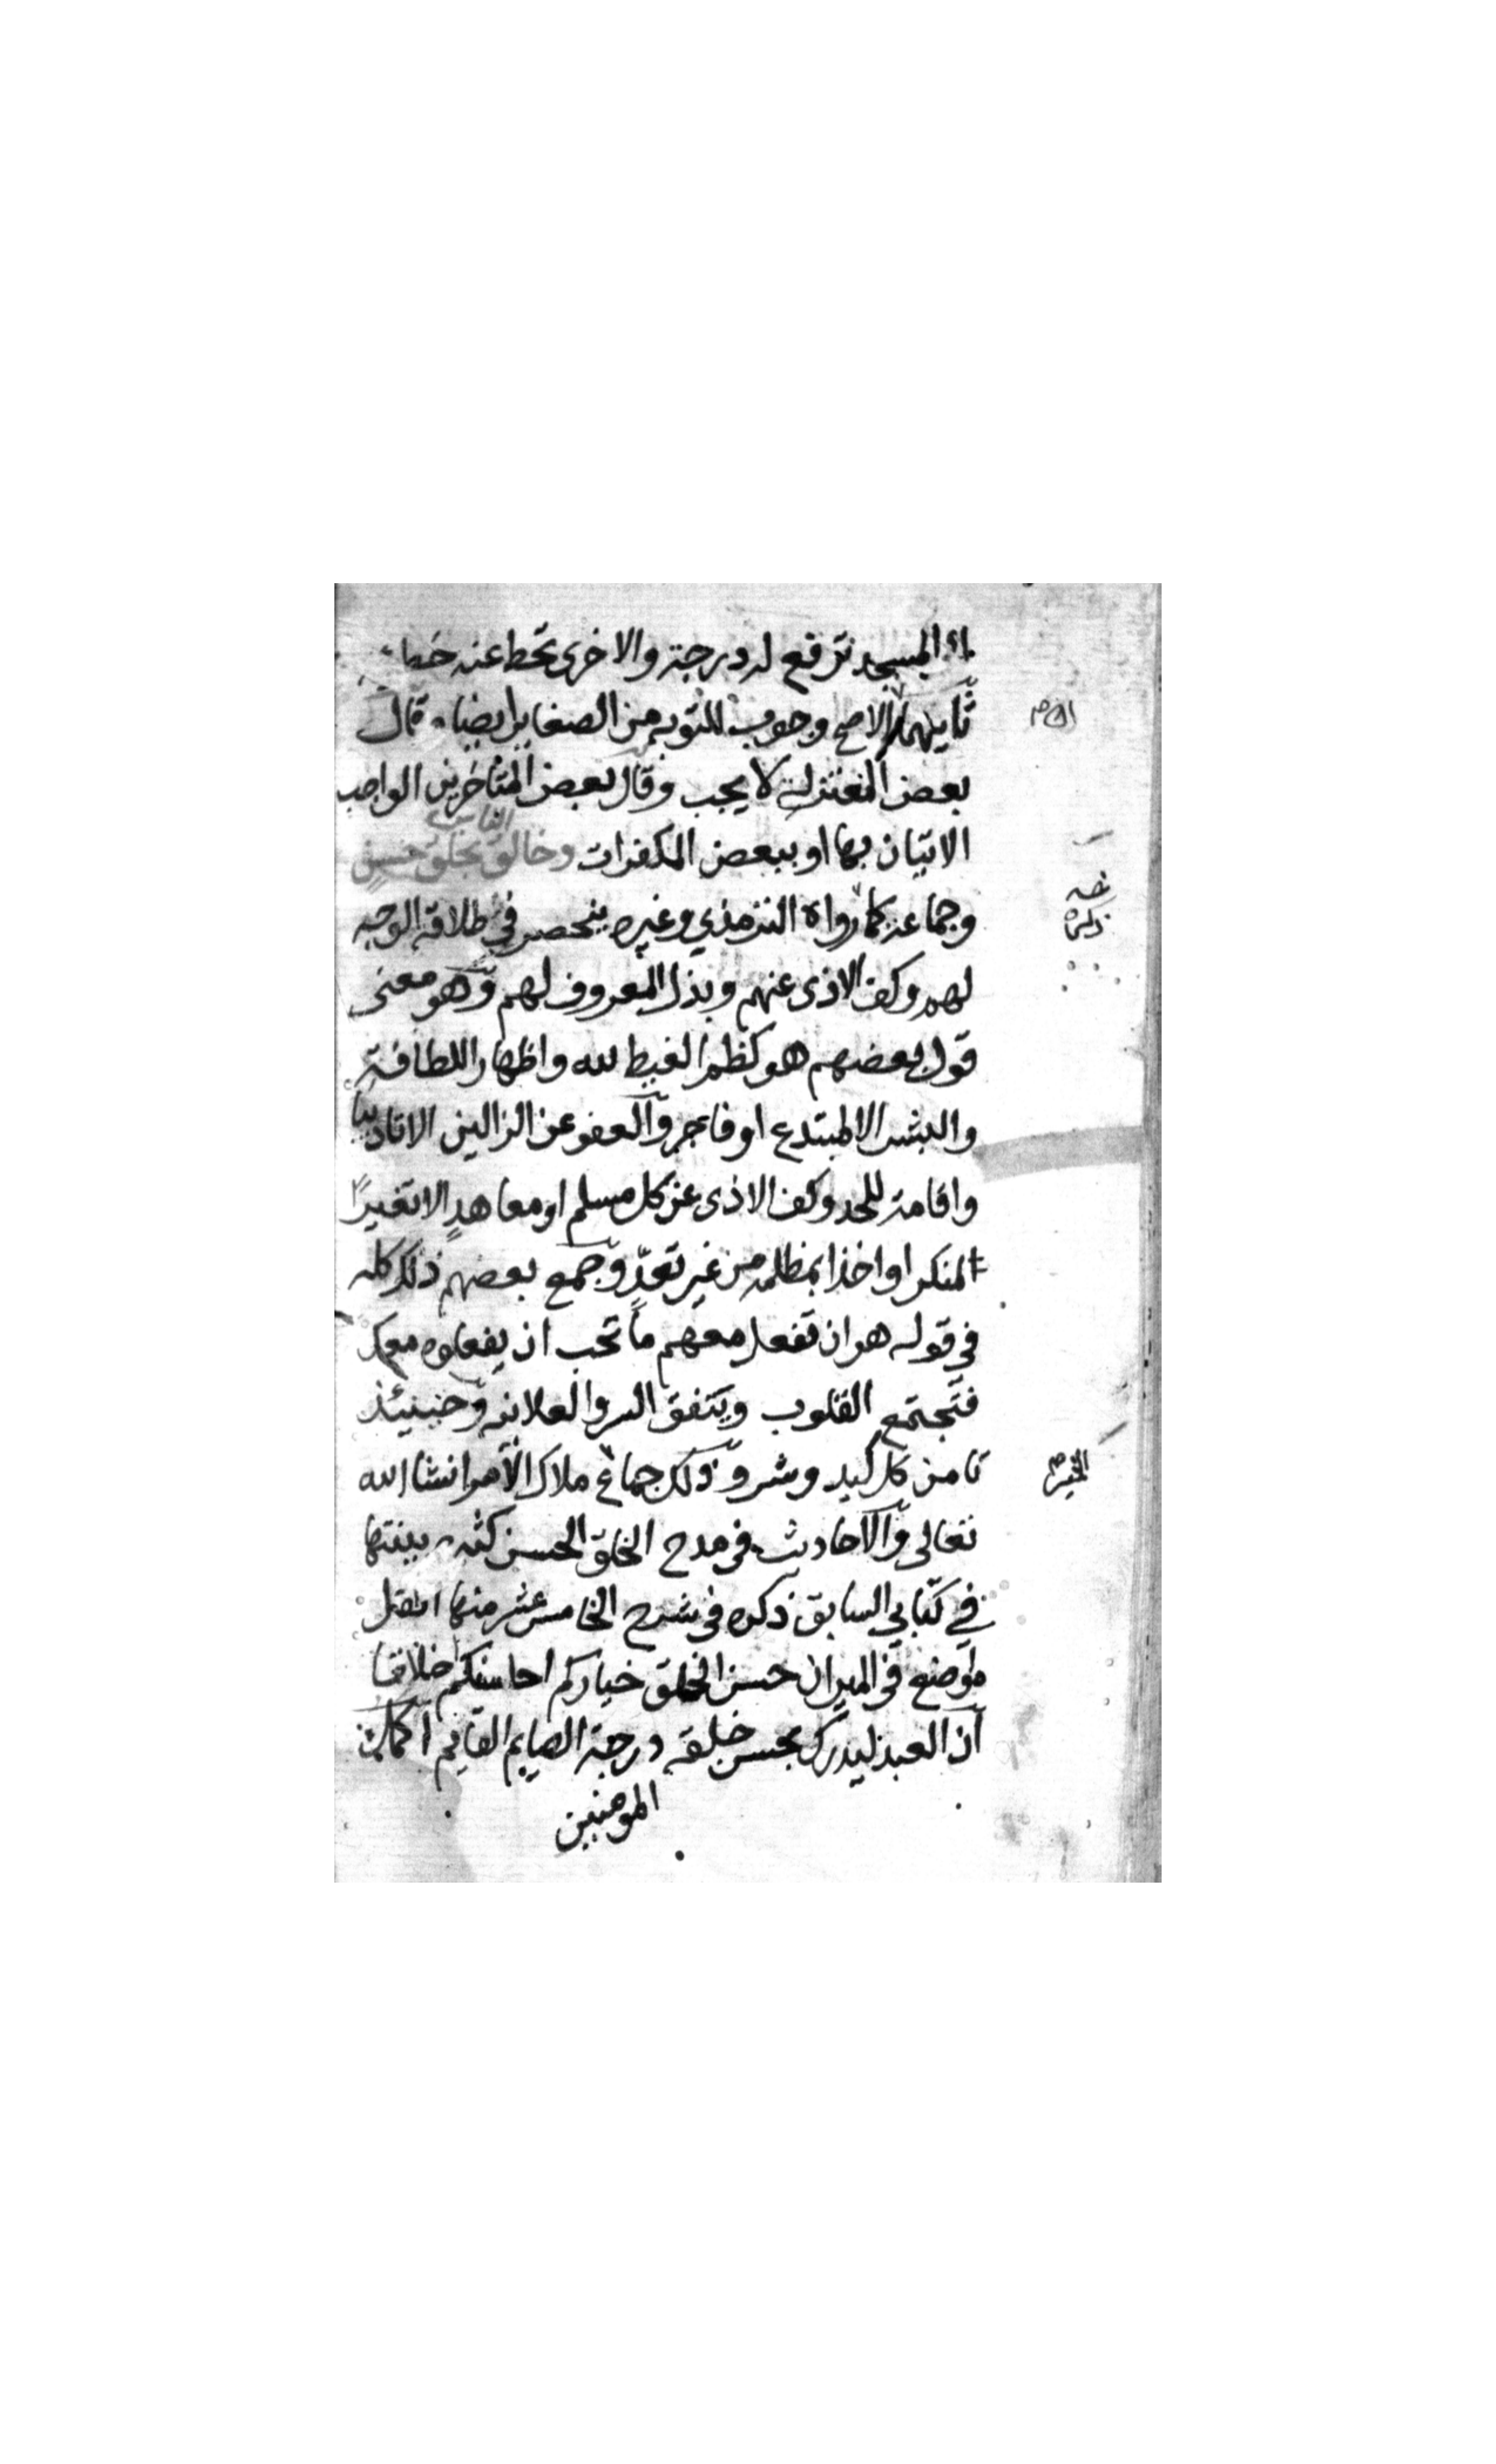 المسجد ترفع له درجة والاخرى تحط عنه
ثانيهما الاصح وجوب التوبه من الصغاير ايضا قال
بعض المعتزلة لا يجب وقال بعض المتاخرين الواجب
الاتيان بها او ببعض المكفرات وخالق الناس بخلق حسن
وجماعه كما رواه الترمذي وغيره ينحصر في طلاقة الوجه
لهم وكف الاذى عنهم وبذل المعروف لهم وهو معنى
قول بعضهم هو كظم الغيظ لله واظهار الطلاقة
والبشر الا لمبتدع او فاجر والعفو عن الزالين الا تاديبا
واقامة للحد وكف الاذى عن كل مسلم او معاهدٍ الا تغييرًا
لمنكر او اخذا بمظلمه من غير تعدٍّ وجمع بعضهم ذلك كله
في قوله هو ان تفعل معهم ما تحب ان يفعلوه معك
فتجتمع القلوب ويتفق السر والعلانيه وحينئذ
تامن كل كيد وشر وذلك جماع ملاك الامر انشا الله
تعالى والاحاديث في مدح الخلق الحسن كثيره بينتها
في كتابي السابق ذكره في شرح الخامس عشر منها افضل
ما وضع في الميزان حسن الخلق خياركم احاسنكم اخلاقا
ان العبد ليدرك بحسن خلقه درجة الصايم القايم اكمل
المومنين